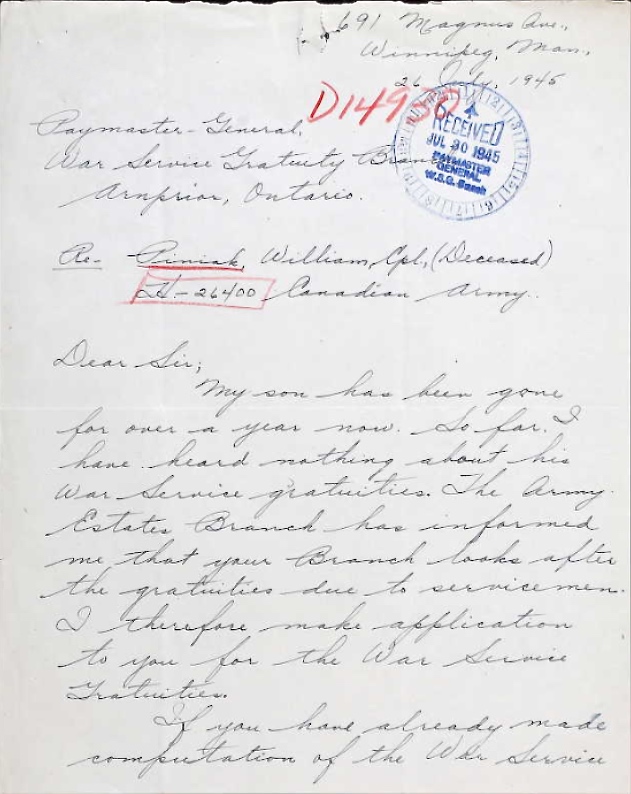 691 Magnus Ave.,
Winnipeg, Man.,
26 July, 1945
D14930
6
RECEIVED
JUL 30 1945
PAYMASTER
GENERAL
W.S.G. Branch
Paymaster-General,
War Service Gratuity Branch
Arnprior, Ontario.
Re- Piniak, William, Cpl, (Deceased)
H-26400 Canadian Army.
Dear Sir;
My son has been gone
for over a year now. So far I
have heard nothing about his
War Service gratuities. The Army
Estates Branch has informed
me that your Branch looks after
the gratuities due to servicemen.
I therefore make application
to you for the War Service
Gratuities.
If you have already made
computation of the War Service